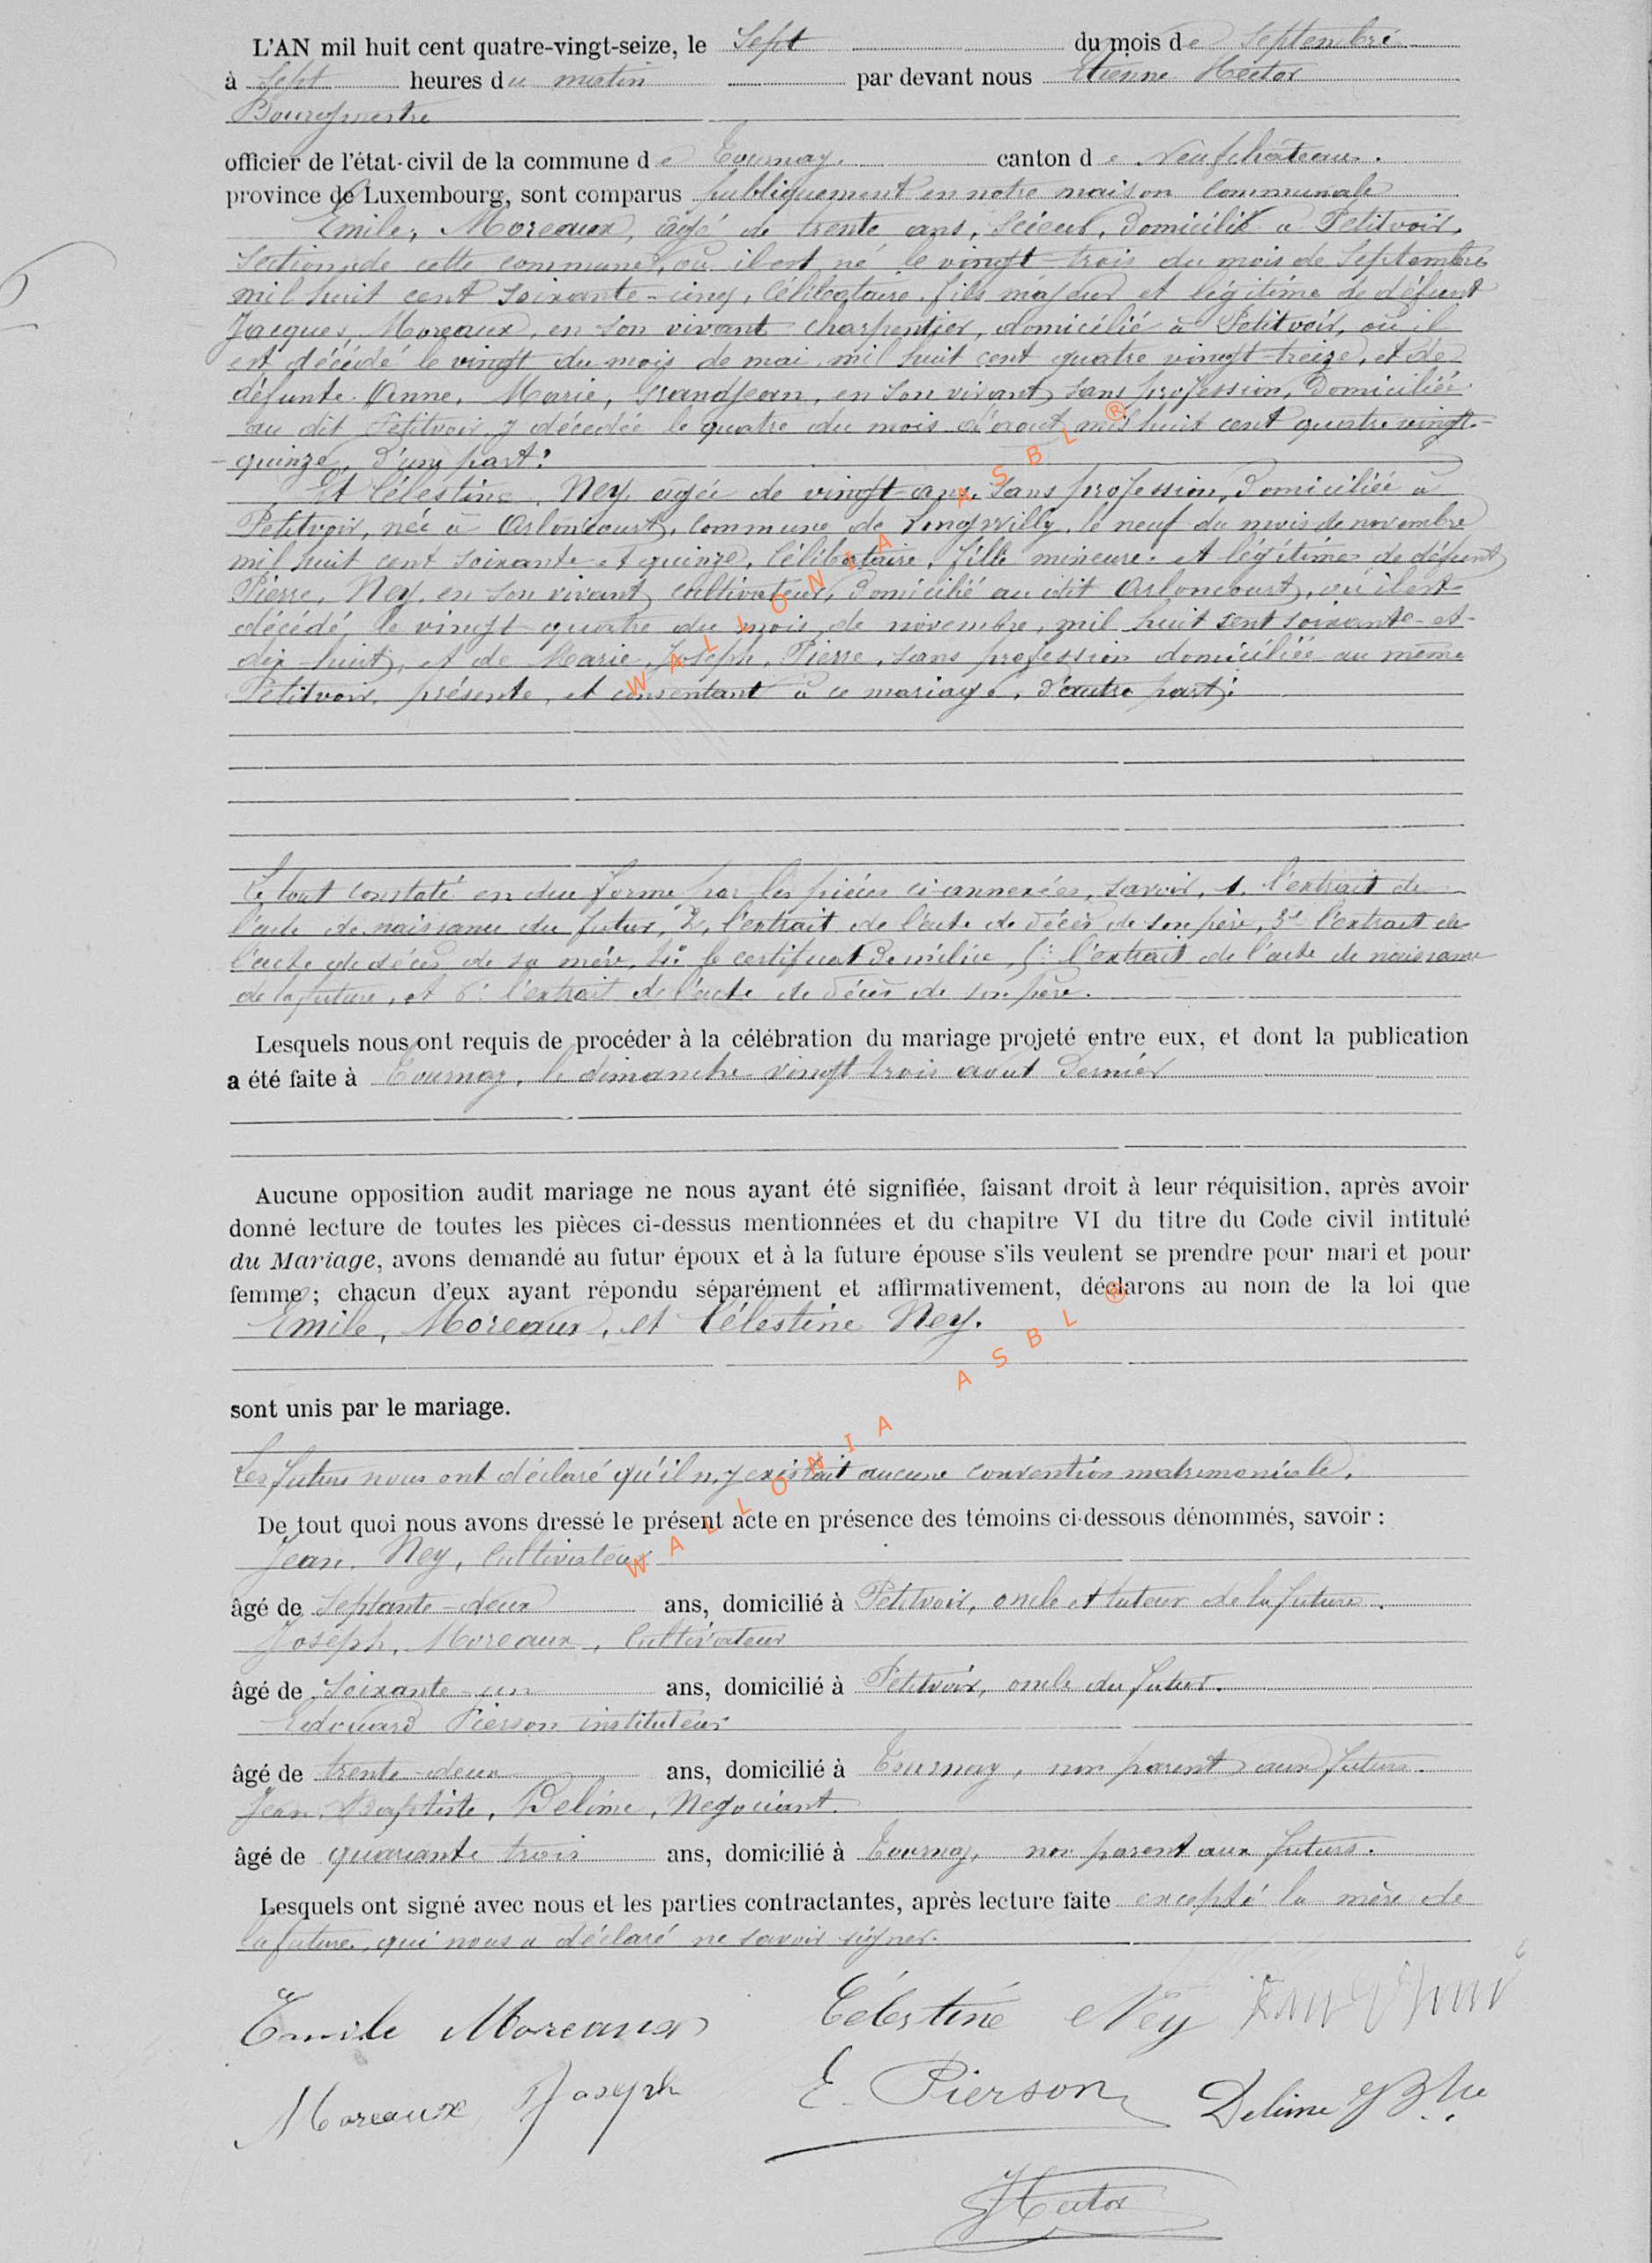 L'AN mil huit cent quatre-vingt-seize, le Sept du mois de Septembre
à Sept heures du matin par devant nous Etienne Hector
Bourgmestre
officier de l'état-civil de la commune de Tournay. canton de Neufchâteau.
province de Luxembourg, sont comparus publiquement en notre maison communale
Emile, Moreaux, âgé de trente ans, Scieur, domicilié à Petitvoir,
Section de cette commune, où il est né le vingt-trois du mois de Septembre
mil huit cent soixante-cinq, Célibataire, fils majeur et légitime de défunt
Jacques, Moreaux, en son vivant Charpentier, domicilié à Petitvoir, où il
est décédé le vingt du mois de mai mil huit cent quatre vingt-treize, et de
défunte Anne, Marie, Grandjean, en son vivant, sans profession, Domiciliée
au dit Petitvoir, y décédée le quatre du mois d'août mil huit cent quatre vingt-
-quinze, d'une part:
Et Célestine, Ney, âgée de vingt ans, Sans profession, Domiciliée à
Petitvoir, née à Arloncourt, Commune de Longwilly, le neuf du mois de novembre
mil huit cent soixante et quinze, Célibataire, fille mineure et légitime de défunt
Pierre, Ney, en son vivant, Cultivateur, Domicilié au dit Arloncourt, où il est
décédé, le vingt-quatre du mois de novembre, mil huit cent soixante-et-
dix-huit, et de Marie, Joseph, Pierre, sans profession domiciliée au même
Petitvoir, présente, et consentant à ce mariage, d'autre part:
Le tout constaté en due forme par les pièces ci-annexées, savoir, 1. l'extrait de
l'acte de naissance du futur, 2. l'extrait de l'acte de décès de son père, 3° l'extrait de
l'acte de décès de sa mère, 4° le certificat de milice, 5° l'extrait de l'acte de naissance
de la future, et 6° l'extrait de l'acte de décès de son père.
Lesquels nous ont requis de procéder à la célébration du mariage projeté entre eux, et dont la publication
a été faite à Tournay, le dimanche vingt trois août dernier
Aucune opposition audit mariage ne nous ayant été signifiée, faisant droit à leur réquisition, après avoir
donné lecture de toutes les pièces ci-dessus mentionnées et du chapitre VI du titre du Code civil intitulé
du Mariage, avons demandé au futur époux et à la future épouse s'ils veulent se prendre pour mari et pour
femme ; chacun d'eux ayant répondu séparément et affirmativement, déclarons au nom de la loi que
Emile, Moreaux, et Célestine Ney.
sont unis par le mariage.
Les futurs nous ont déclaré qu'il n,y existait aucune convention matrimoniale.
De tout quoi nous avons dressé le présent acte en présence des témoins ci-dessous dénommés, savoir :
Jean, Ney, Cultivateur
âgé de Septante-deux ans, domicilié à Petitvoir, oncle et tuteur de la future.
Joseph, Moreaux, Cultivateur
âgé de Soixante-un ans, domicilié à Petitvoir, oncle du futur.
Edouard Pierson instituteur
âgé de trente-deux ans, domicilié à Tournay, non parent aux futurs.
Jean, Baptiste, Delime, Négociant.
âgé de quarante trois ans, domicilié à Tournay, non parent aux futurs.
Lesquels ont signé avec nous et les parties contractantes, après lecture faite excepté la mère de
la future, qui nous a déclaré ne savoir signer.
Emile Moreaux Célestine Ney
Moreaux Joseph E. Pierson Delime J Bte
Hector
WALLONIA ASBL ®
WALLONIA ASBL ®